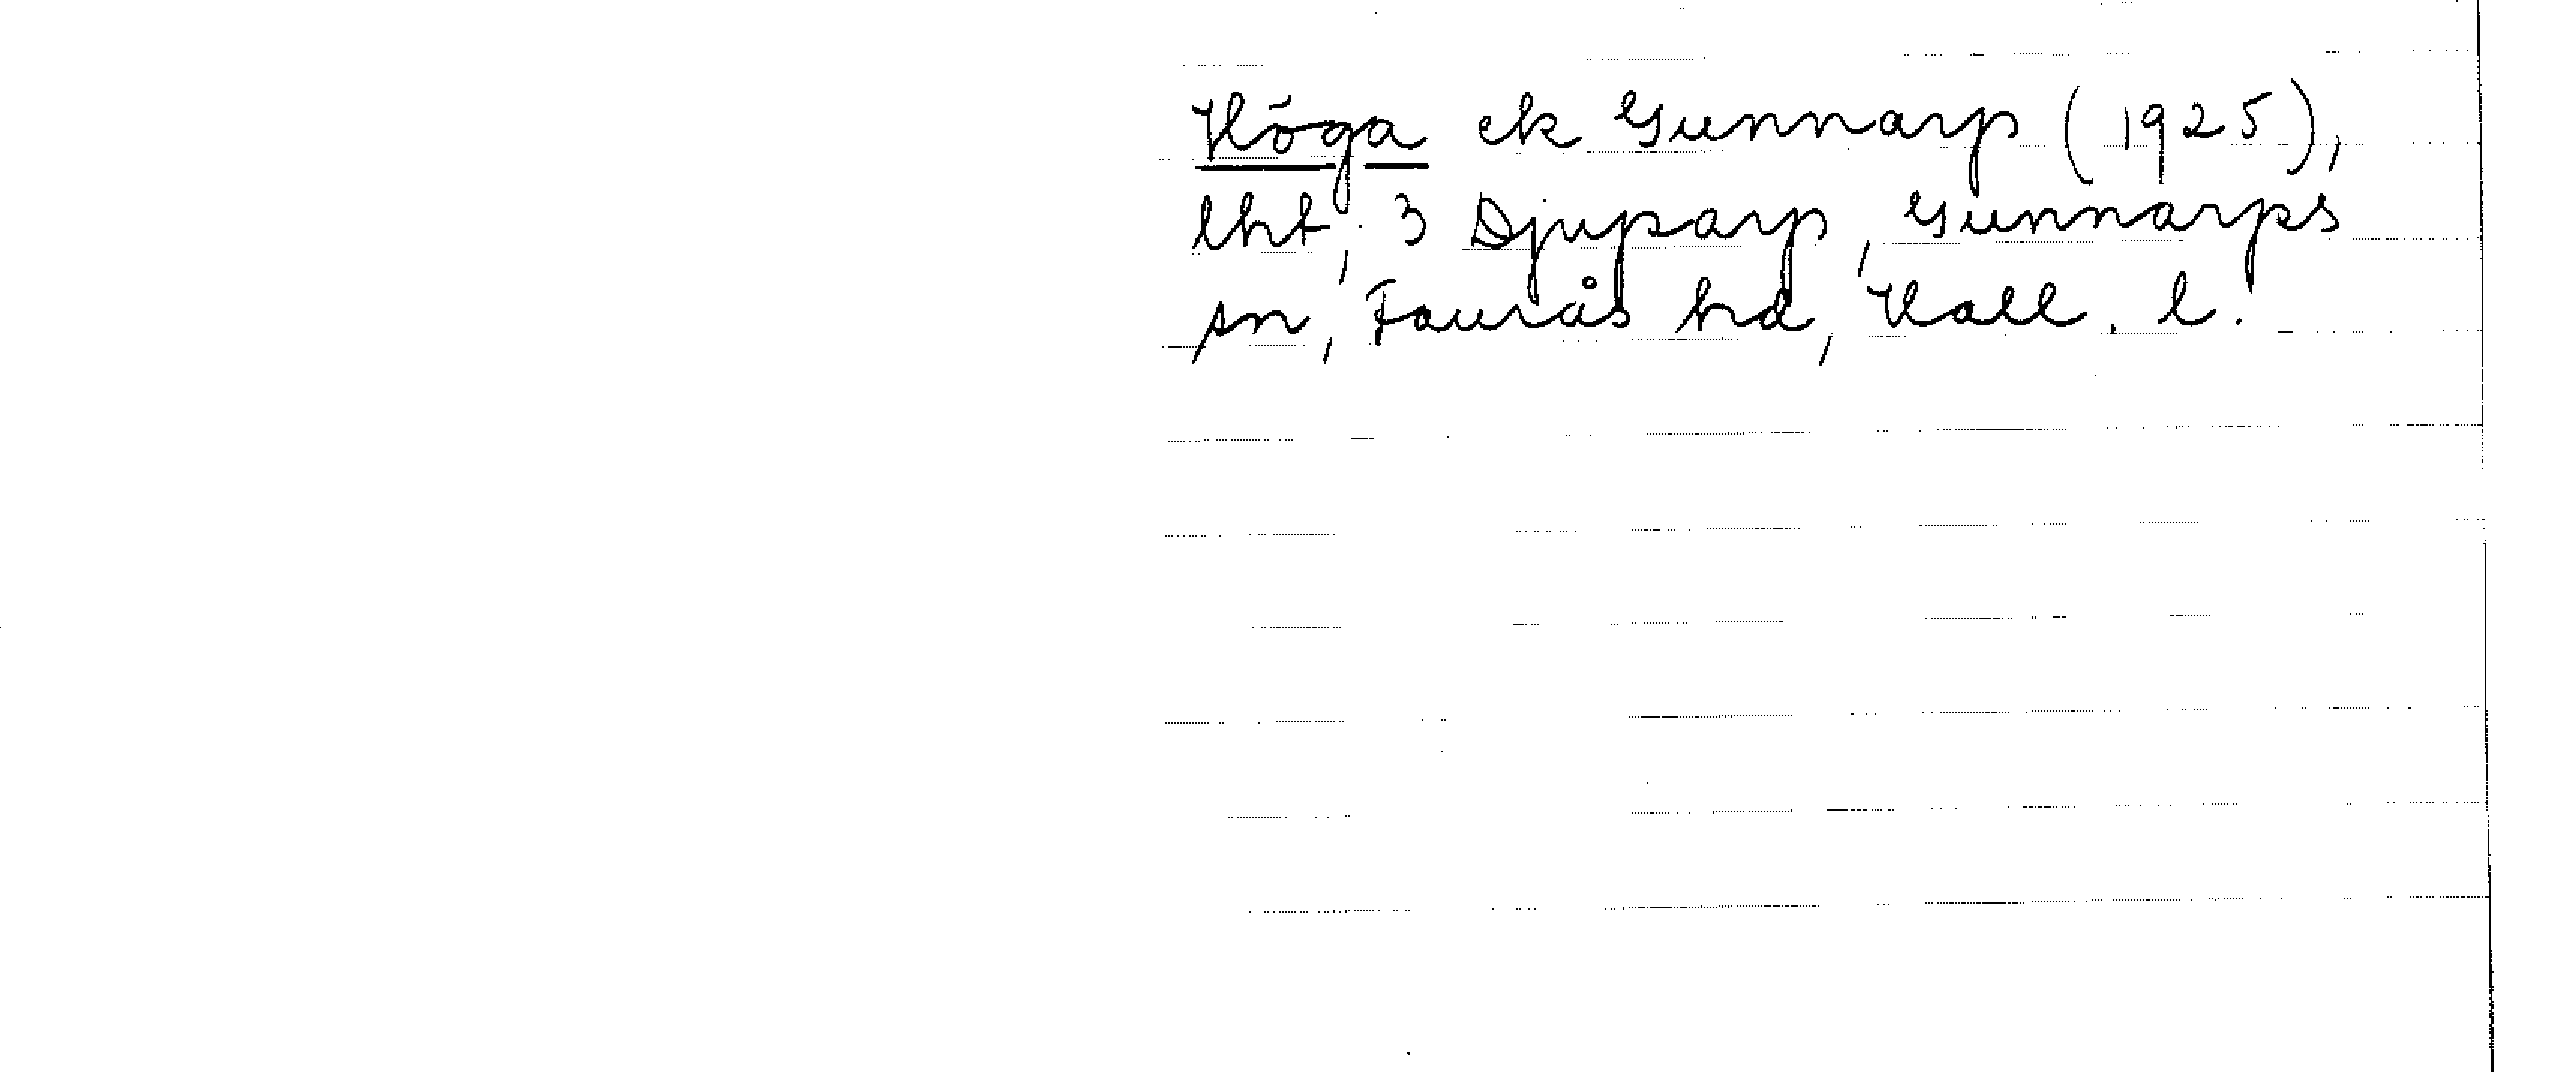 Höga ek Gunnarp (1925),
lht, 3 Djuparp, Gunnarps
sn, Faurås hd, Hall. l.